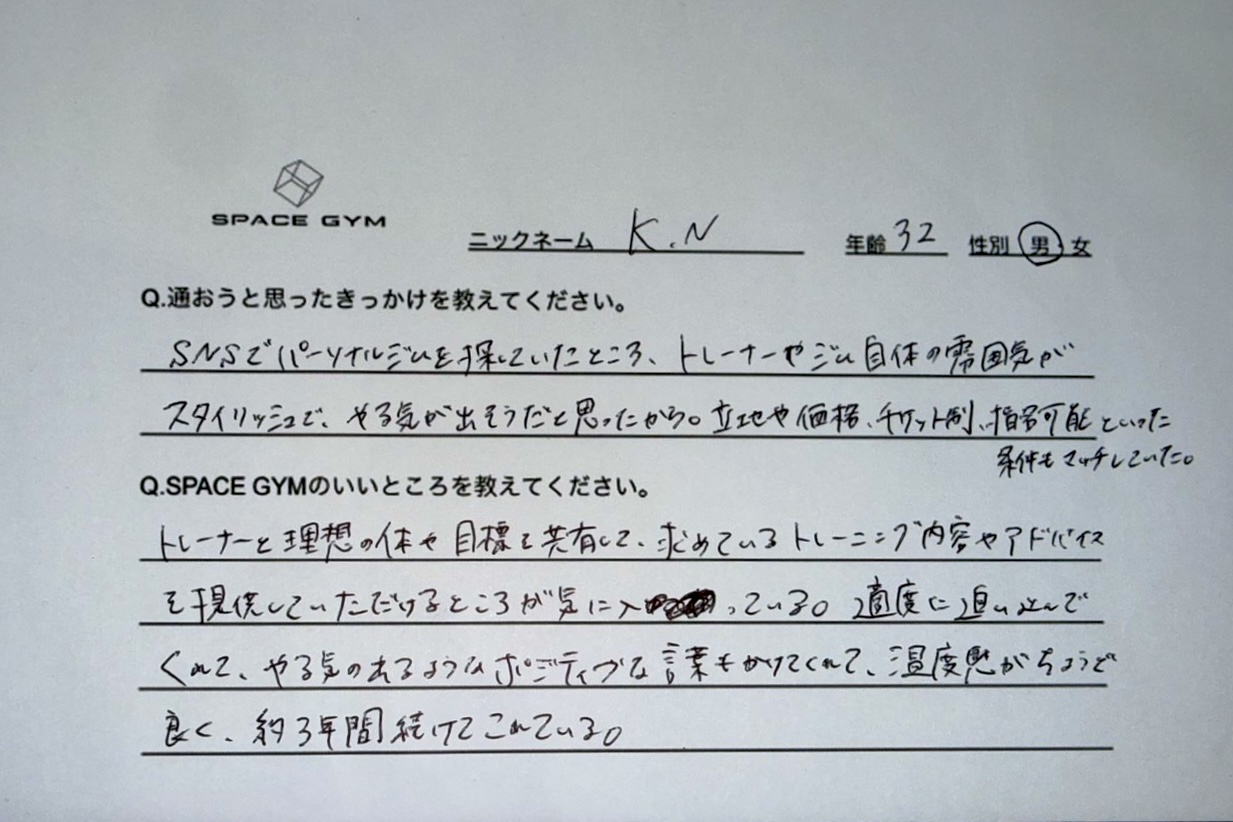 SPACE GYM
ニックネーム K.N 年齢 32 性別 男・女
Q.通おうと思ったきっかけを教えてください。
SNSでパーソナルジムを探していたところ、トレーナーやジム自体の雰囲気が
スタイリッシュで、やる気が出そうだと思ったから。立地や価格、チケット制、指名可能といった
条件もマッチしていた。
Q.SPACE GYMのいいところを教えてください。
トレーナーと理想の体や目標を共有して、求めているトレーニング内容やアドバイス
を提供していただけるところが気に入っている。適度に追い込んで
くれて、やる気の出るようなポジティブな言葉もかけてくれて、温度感がちょうど
良く、約3年間続けてこれている。